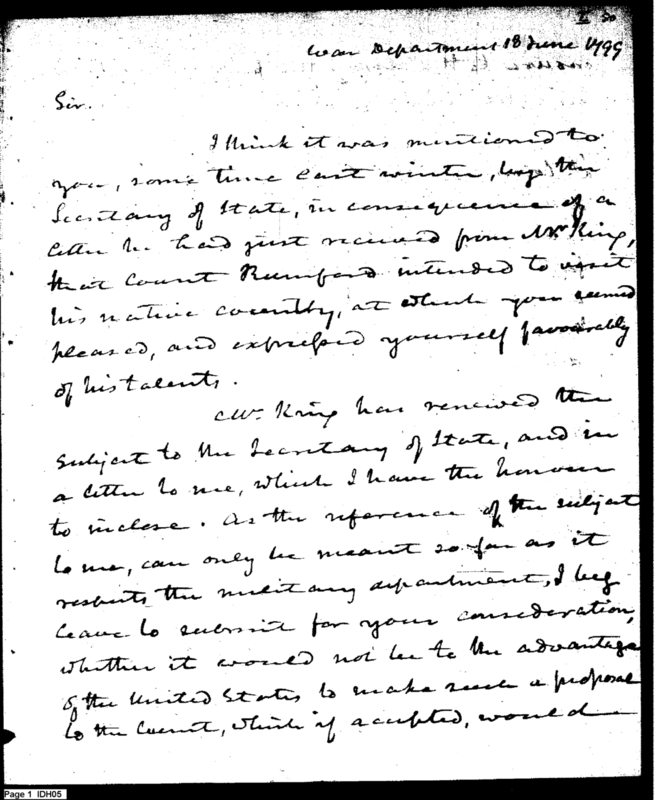 I 50
War Department 18 June 1799
Sir.
I think it was mentioned to
you, some time last winter, by the
Secretary of State, in consequence of a
letter he had just received from Mr. King,
that Count Rumford intended to visit
his native country, at which you seemed
pleased, and expressed yourself favourably
of his talents.
Mr. King has renewed the
subject to the Secretary of State, and in
a letter to me, which I have the honour
to inclose. As the reference of the subject
to me, can only be meant so far as it
respects the military department, I beg
leave to submit for your consideration,
whether it would not be to the advantage
of the United States to make such a proposal
to the Count, which if accepted, would
Page 1 IDH05